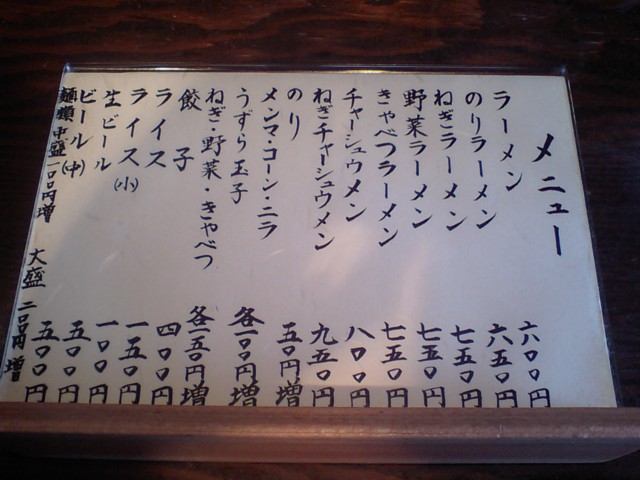 メニュー
ラーメン 六〇〇円
のりラーメン 六五〇円
ねぎラーメン 七五〇円
野菜ラーメン 七五〇円
きゃべつラーメン 七五〇円
チャーシュウメン 八〇〇円
ねぎチャーシュウメン 九五〇円
のり 五〇円増
メンマ・コーン・ニラ
うずら玉子 各一〇〇円増
ねぎ・野菜・きゃべつ 各一五〇円増
餃子 四〇〇円
ライス 一五〇円
ライス(小) 一〇〇円
生ビール 五〇〇円
ビール(中) 五〇〇円
麺類 中盛一〇〇円増 大盛 二〇〇円増